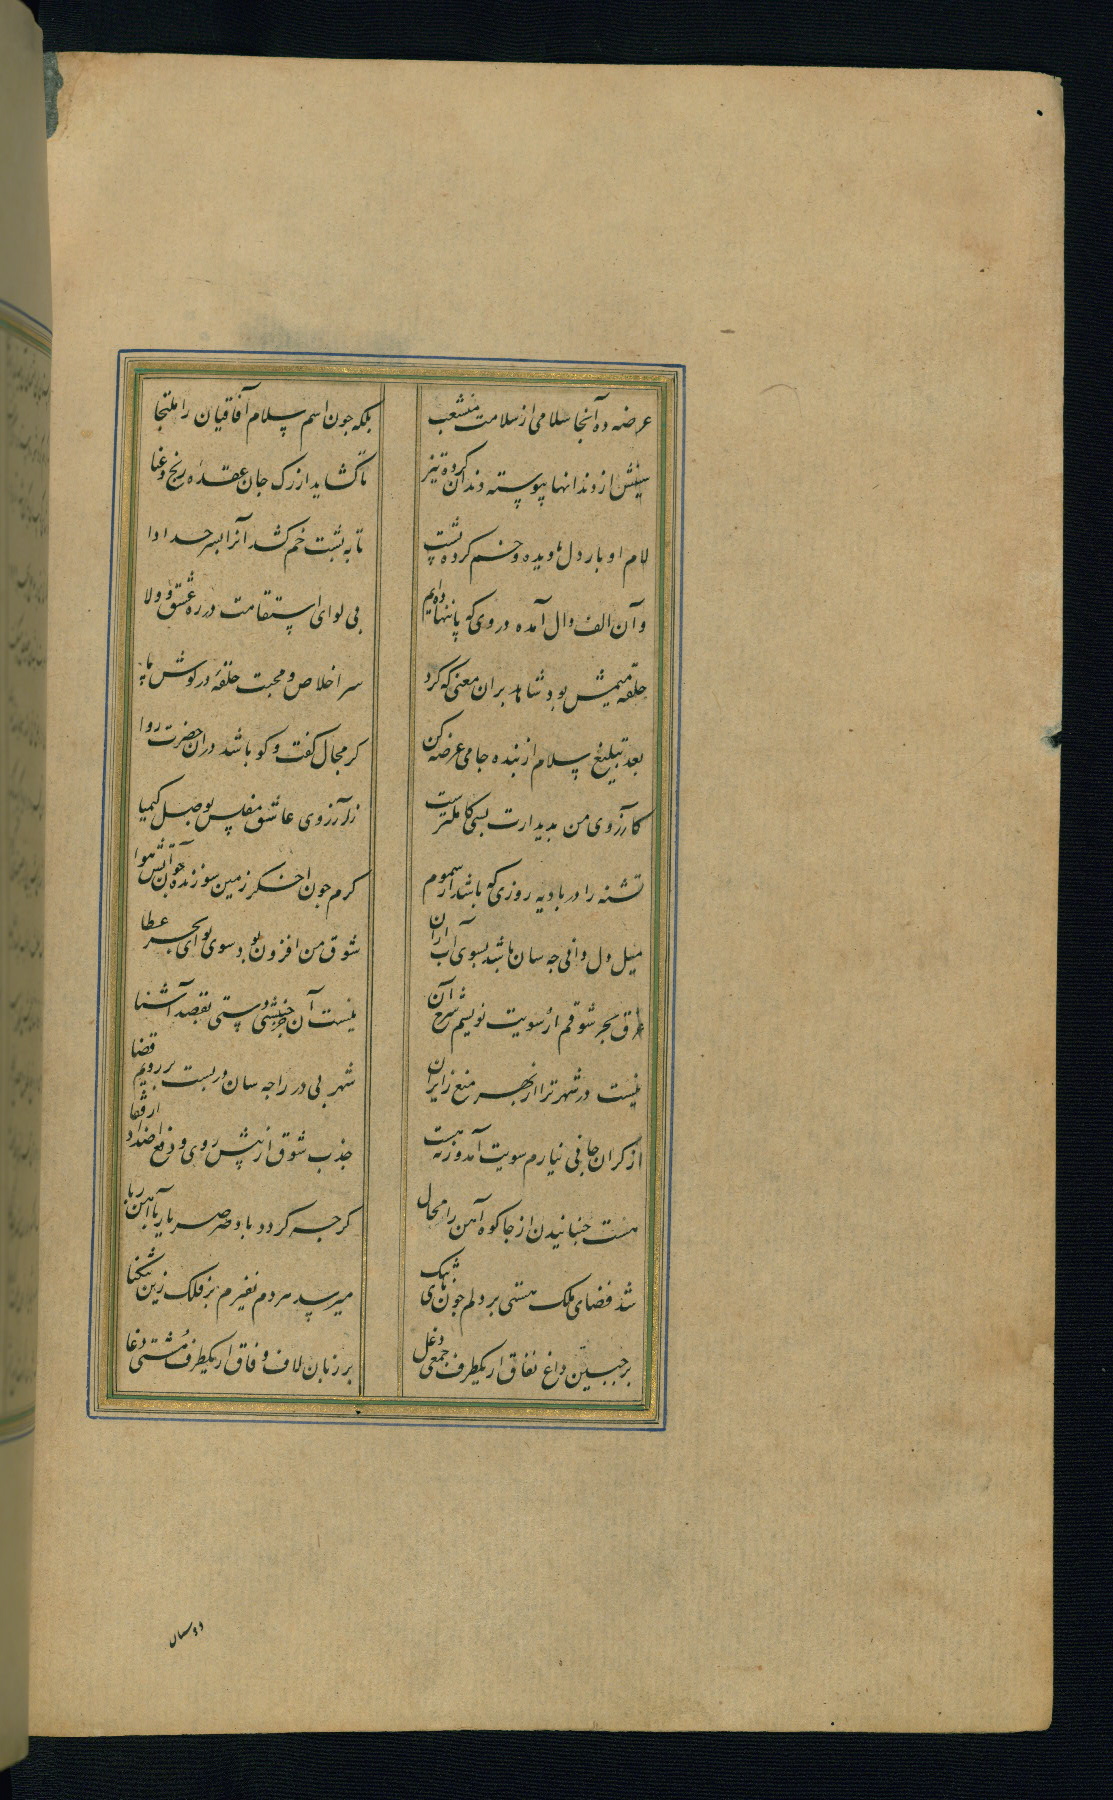 عرضه ده آنجا سلامی از سلامت منشعب بلکه چون اسم سلام آفاقیان را ملتجا
سینش از دندانها پیوسته دندان کرده تیز تا گشاید از رگ جان عقدهٔ رنج و عنا
لام او بار دل ما دیده و خم کرده پشت تا به پشت خم کشد آنرا بسر حد ادا
و آن الف دال آمده در وی که پا ننهاده‌ایم بی لوای استقامت در ره عشق و ولا
حلقه میمش بود شاهد بران معنی که کرد سر اخلاص و محبت حلقهٔ در گوش ما
بعد تبلیغ سلام از بنده جامی عرضه کن گر مجال گفت و گو باشد در آن حضرت روا
کآرزوی من بدیدارت بسی کاملترست ز آرزوی عاشق مفلس بوصل کیمیا
تشنه را در بادیه روزی که باشد از سموم گرم چون اخگر زمین سوزنده چون آتش هوا
میل دل دانی چه سان باشد بسوی آب از آن شوق من افزون بود سوی تو ای بحر عطا
غرق بحر شوقم ار سویت نویسم شرح آن نیست آن جز جنبش دستی بقصد آشنا
نیست در شهر ترا از بهر منع زایران شهر بی در را چه سان در بست بر رویم قضا
از گران جانی نیارم سویت آمد ورنه هست جذب شوق از پیش روی و دفع اضداد از قفا
هست جنبانیدن از جا کوه آهن را محال گر چه گردد باد صرصر یار با آهن ربا
شد فضای ملک هستی بر دلم چون نای تنگ میرسد هر دم نفیرم بر فلک زین تنگنا
بر جبین داغ نفاق از یکطرف جمعی دغل بر زبان لاف وفاق از یکطرف مشتی دغا